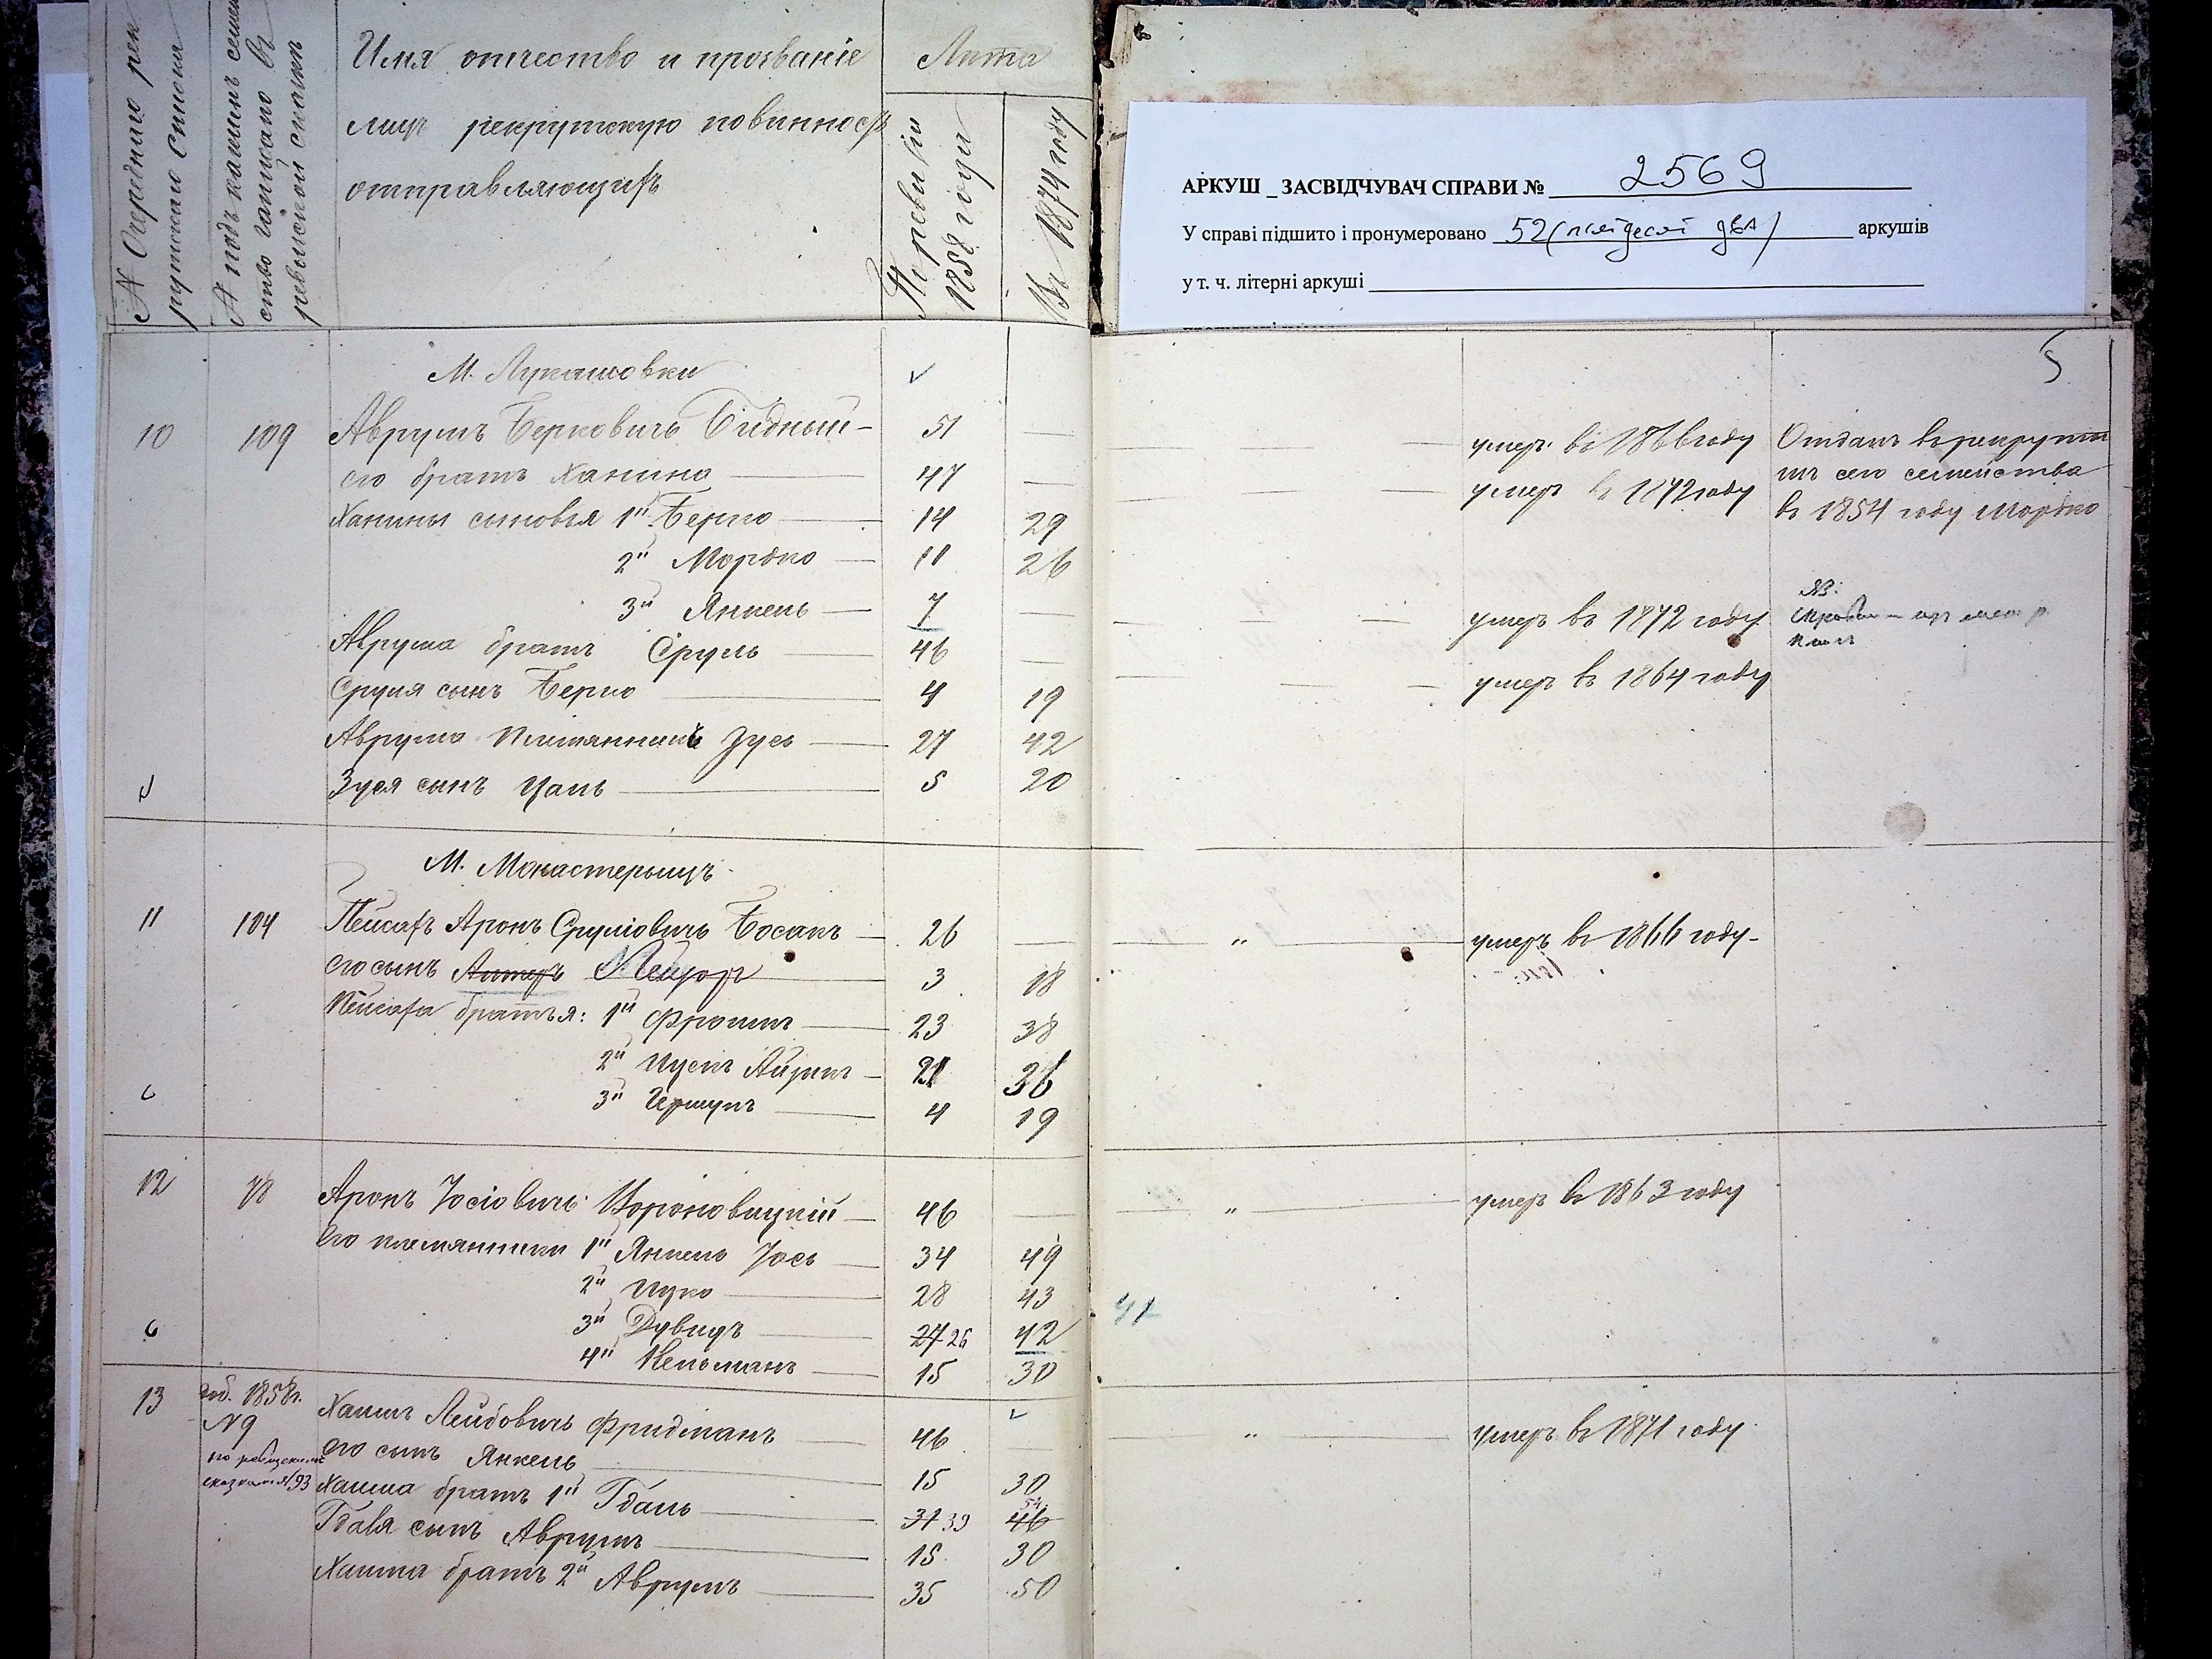 № Очереднаго рек
рутскаго списка
№ подъ какимъ семей
ство записано въ
ревизской сказкѣ
Имя отчество и прозваніе
лицъ рекрутскую повинность
отправляющихъ
Лѣта
По ревизіи
1858 года
Въ 1874 году
АРКУШ _ ЗАСВІДЧУВАЧ СПРАВИ № 2569
У справі підшито і пронумеровано 52 (пятдесят два) аркушів
у т. ч. літерні аркуші
5
М. Лукашовки
10 109 Аврумъ Берковичъ Бидный 51 — умеръ въ 1866 году Отданъ въ рекруты
его братъ Ханина 47 — умеръ въ 1872 году съ сего семейства
Ханины сыновья 1й Берко 14 29 въ 1854 году Мордко
2й Мордко 11 26
3й Янкель 7 — умеръ въ 1872 году NB:
Аврума братъ Сруль 46 — умеръ въ 1864 году
Сруля сынъ Берко 4 19
Аврума племянникъ Зусь 27 42
Зуся сынъ Цаль 5 20
М. Монастерыщъ
11 104 Пейсахъ Аронъ Сруліовичъ Босакъ 26 — " — умеръ въ 1866 году
его сынъ Алтеръ Лейзоръ 3 18
Пейсаха братья: 1й Фроимъ 23 38
2й Ицекъ Айзикъ 21 36
3й Гершукъ 4 19
12 78 Аронъ Іосіовичъ Вороновицкій 46 — " — умеръ въ 1863 году
его племянники 1й Янкель Іось 34 49
2й Ицко 28 43
3й Дувидъ 27 26 42
4й Кельманъ 15 30
13 доб. 1858 г.
№ 9
по ревизскимъ
сказкамъ 93
Хаимъ Лейбовичъ Фридманъ 46 " — умеръ въ 1871 году
его сынъ Янкель 15 30
Хаима братъ 1й Гдаль 31 39 46 54
Гдаля сынъ Аврумъ 15 30
Хаима братъ 2й Аврумъ 35 50